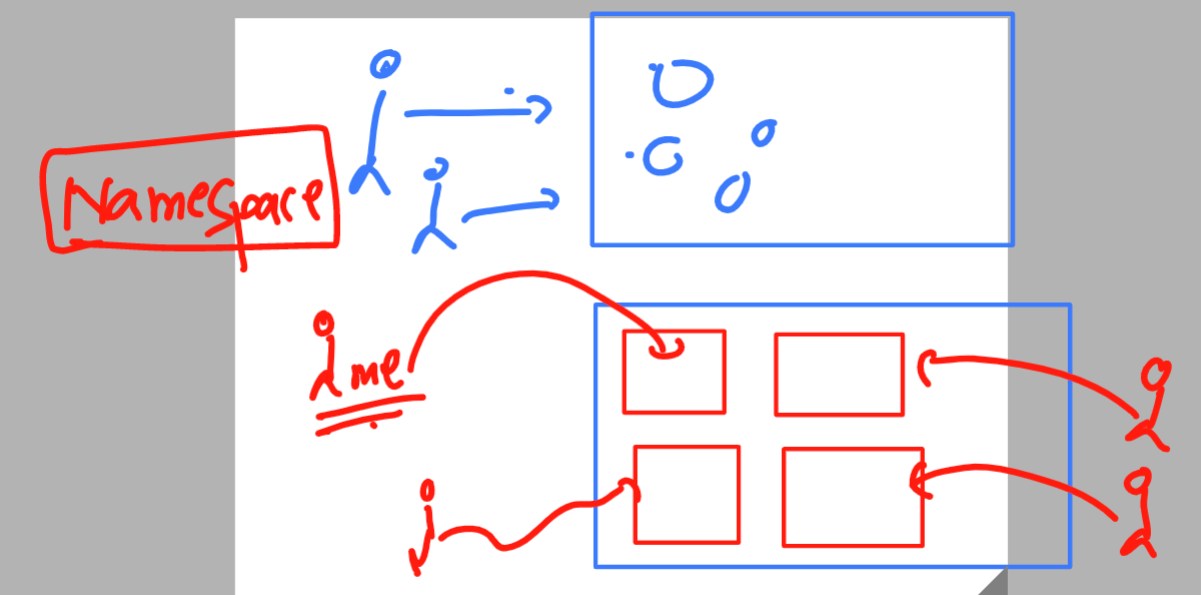 Namespace
me